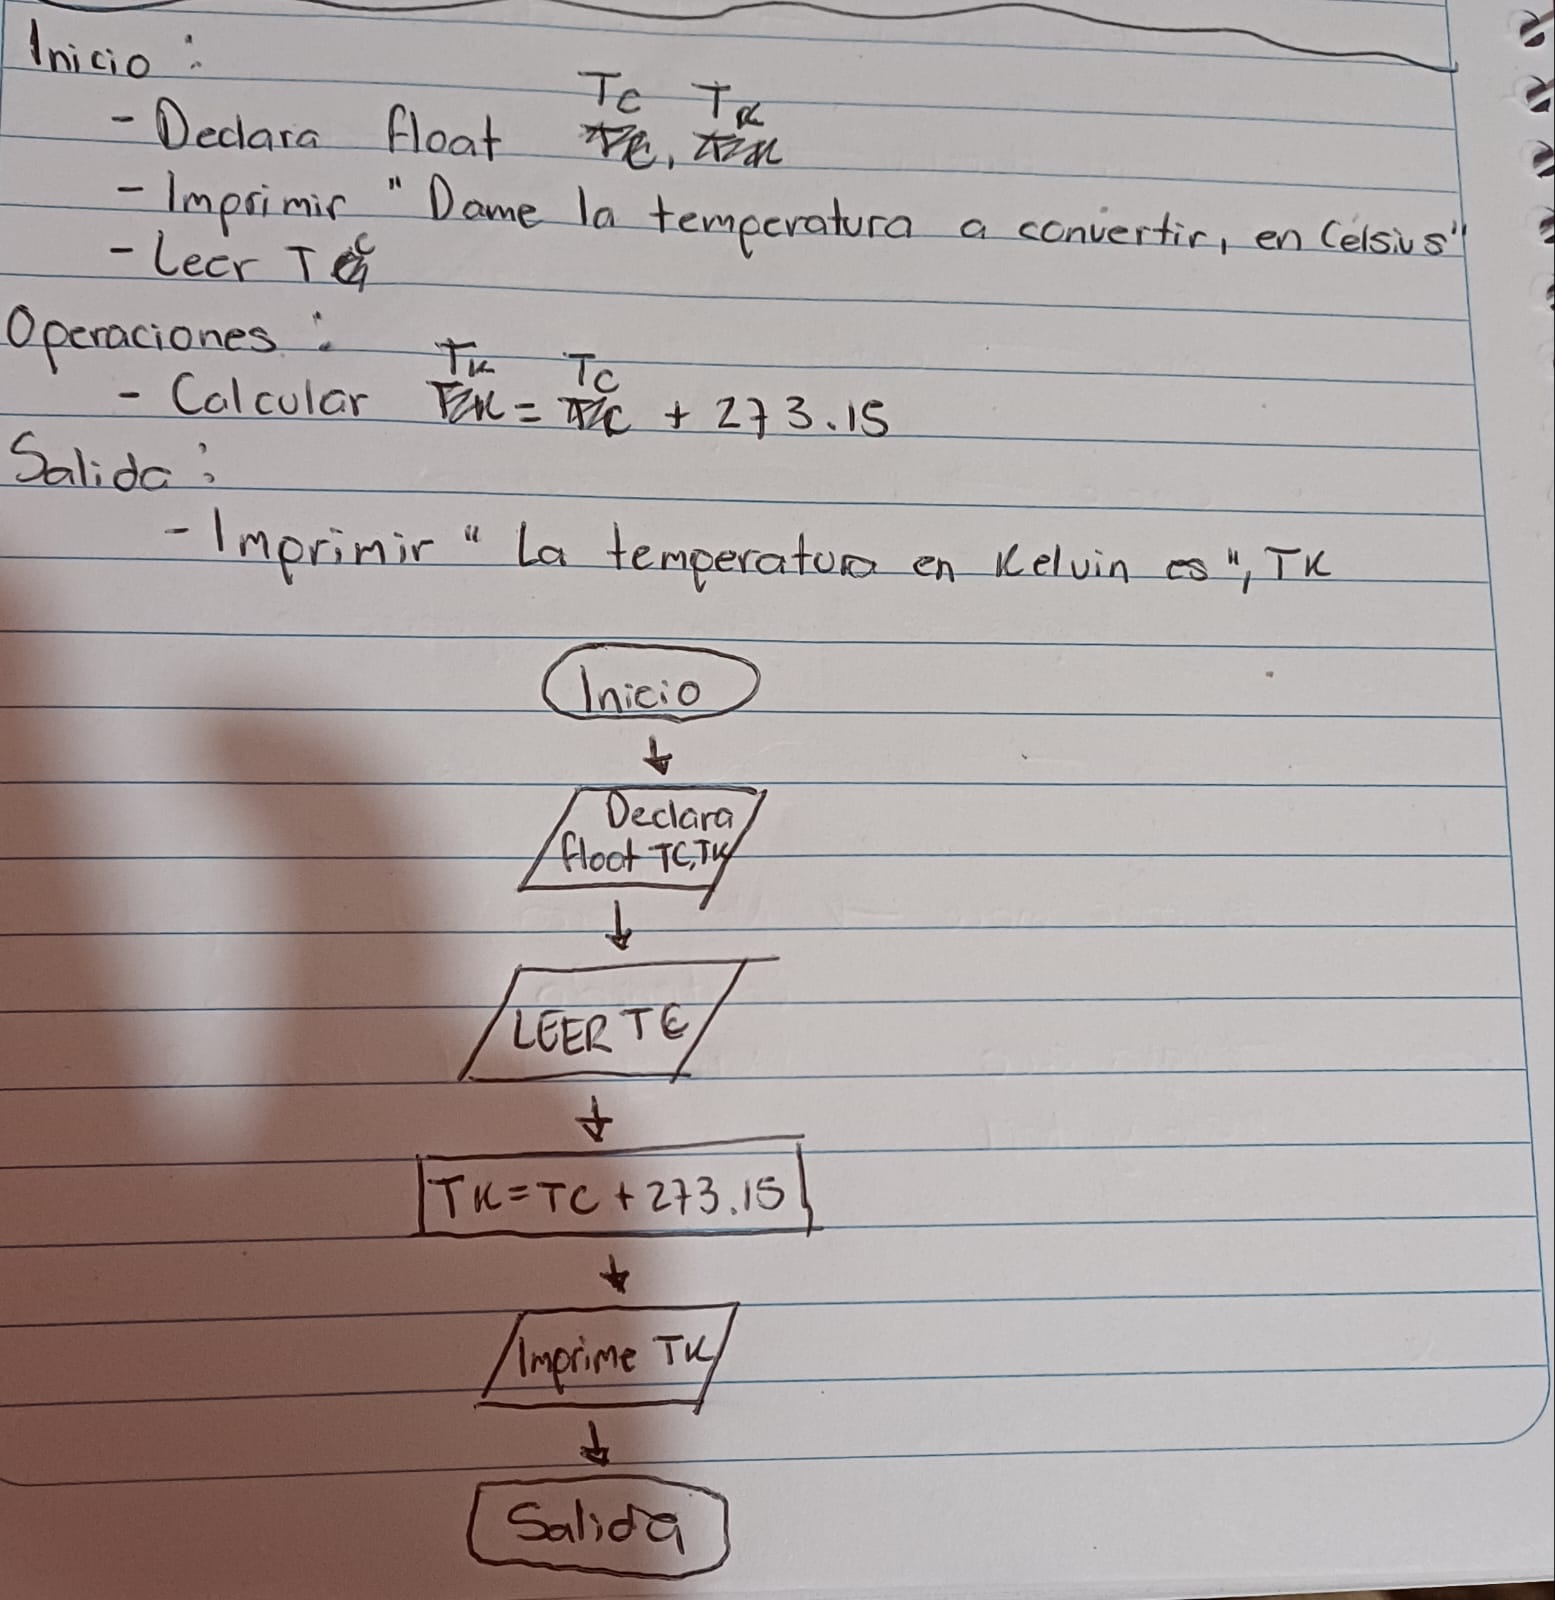 Inicio :
TC TK
- Declara float
- Imprimir "Dame la temperatura a convertir, en Celsius"
- Leer TC
Operaciones :
TK TC
- Calcular = + 273.15
Salida :
- Imprimir "La temperatura en Kelvin es", TK
Inicio
Declara
float TC, TK
LEER TC
TK = TC + 273.15
Imprime TK
Salida